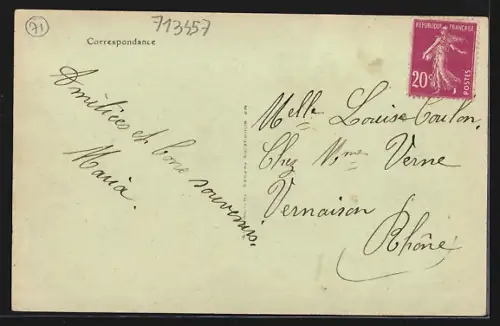 71
713457
Correspondance
Amitiés et bons souvenirs.
Maria.
REPUBLIQUE FRANÇAISE
20c
POSTES
Melle Louise Coulon.
Chez Mme Verne
Vernaison
Rhône